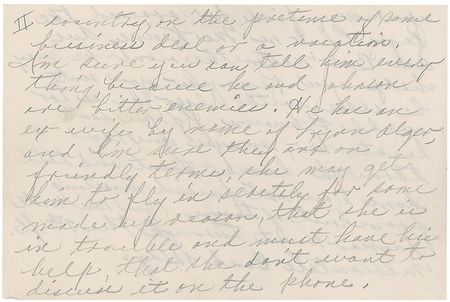 II country, on the pretense of some
business deal or a vacation.
I'm sure you can tell him every
thing because he and
are bitter enemies. He has an
ex-wife by name of Lynn Alger,
and I'm sure they are on
friendly terms, she may get
him to fly in secretly for some
made up reason, that she is
in trouble and must have his
help, that she don't want to
discuss it on the phone.